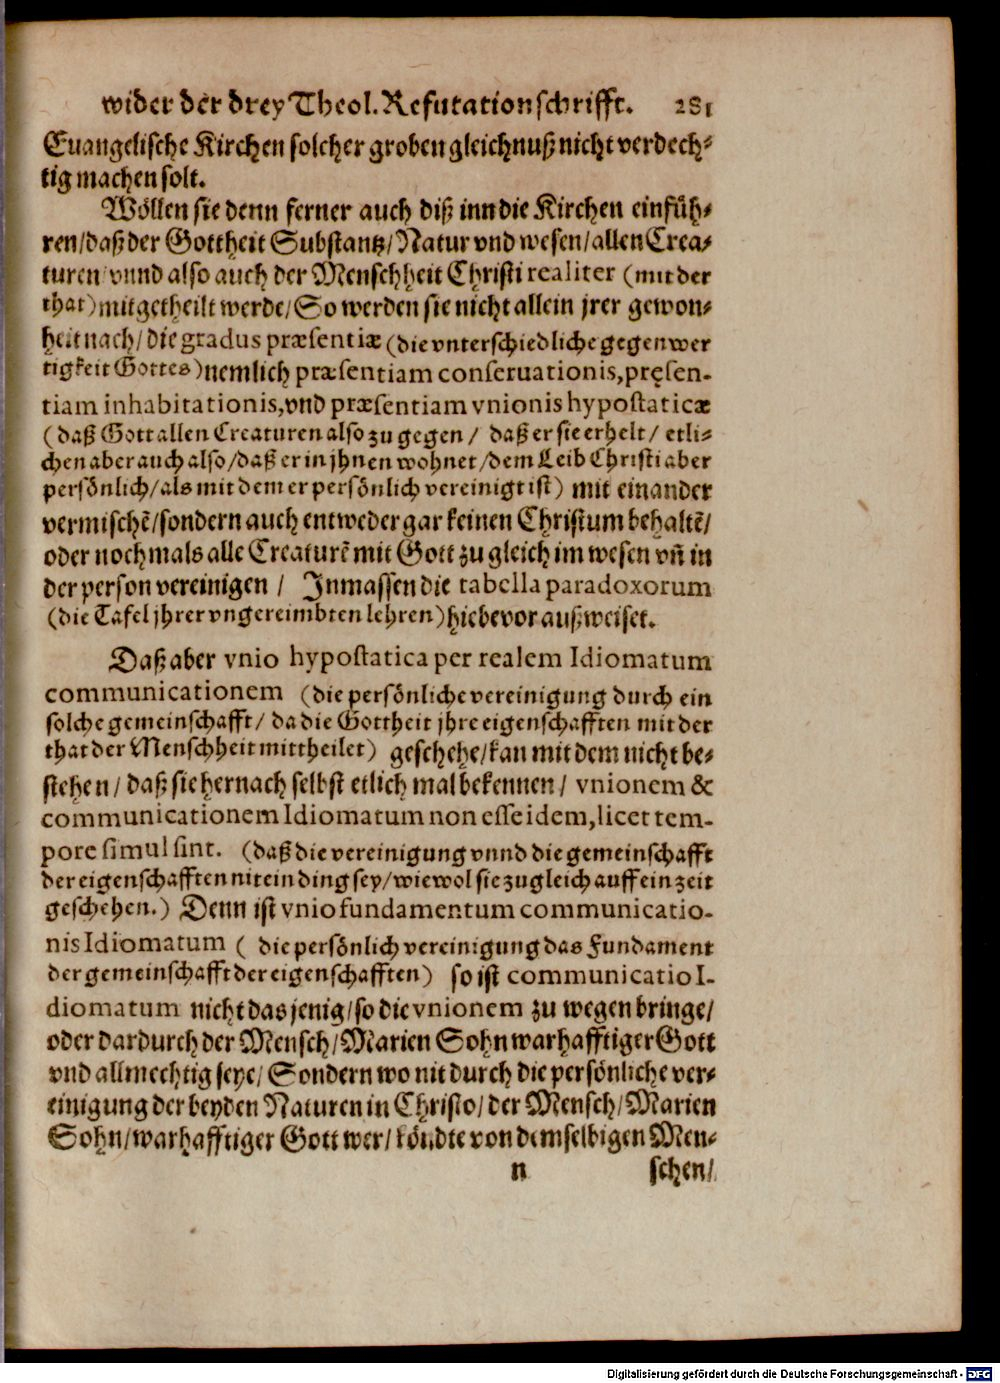 wider der drey Theol. Refutationschrifft. 281
Euangelische Kirchen solcher groben gleichnuß nicht verdech⸗
tig machen solt.
Wöllen sie denn ferner auch diß inn die Kirchen einfüh⸗
ren/ daß der Gottheit Substantz/ Natur vnd wesen/ allen Crea⸗
turen/ vnnd also auch der Menschheit Christi realiter (mit der
that) mitgetheilt werde/ So werden sie nicht allein jrer gewon⸗
heit nach/ die gradus præsentiæ (die vnterschiedliche gegenwer
tigkeit Gottes) nemlich præsentiam conseruationis, pręsen-
tiam inhabitationis, vnd præsentiam vnionis hypostaticæ
(daß Gott allen Creaturen also zu gegen/ daß er sie erhelt/ etli⸗
chen aber auch also/ daß er in jhnen wohnet/ dem Leib Christi aber
persönlich/ als mit dem er persönlich vereinigt ist) mit einander
vermischẽ/ sondern auch entweder gar keinen Christum behaltẽ/
oder nochmals alle Creaturẽ mit Gott zu gleich im wesen vñ in
der person vereinigen/ Inmassen die tabella paradoxorum
(die Tafel jhrer vngereimbten lehren) hiebevor außweiset.
Daß aber vnio hypostatica per realem Idiomatum
communicationem (die persönliche vereinigung durch ein
solche gemeinschafft/ da die Gottheit jhre eigenschafften mit der
that der Menschheit mittheilet) geschehe/ kan mit dem nicht be⸗
stehen/ daß sie hernach selbst etlich mal bekennen/ vnionem &
communicationem Idiomatum non esse idem, licet tem-
pore simul sint. (daß die vereinigung vnnd die gemeinschafft
der eigenschafften nit ein ding sey/ wiewol sie zugleich auff ein zeit
geschehen.) Denn ist vnio fundamentum communicatio-
nis Idiomatum ( die persönlich vereinigung das Fundament
der gemeinschafft der eigenschafften) so ist communicatio I-
diomatum nicht das jenig/ so die vnionem zu wegen bringe/
oder dardurch der Mensch/ Marien Sohn warhafftiger Gott
vnd allmechtig seye/ Sondern wo nit durch die persönliche ver⸗
einigung der beyden Naturen in Christo/ der Mensch/ Marien
Sohn/ warhafftiger Gott wer/ köndte von demselbigen Men⸗
n schen/
Digitalisierung gefördert durch die Deutsche Forschungsgemeinschaft - DFG